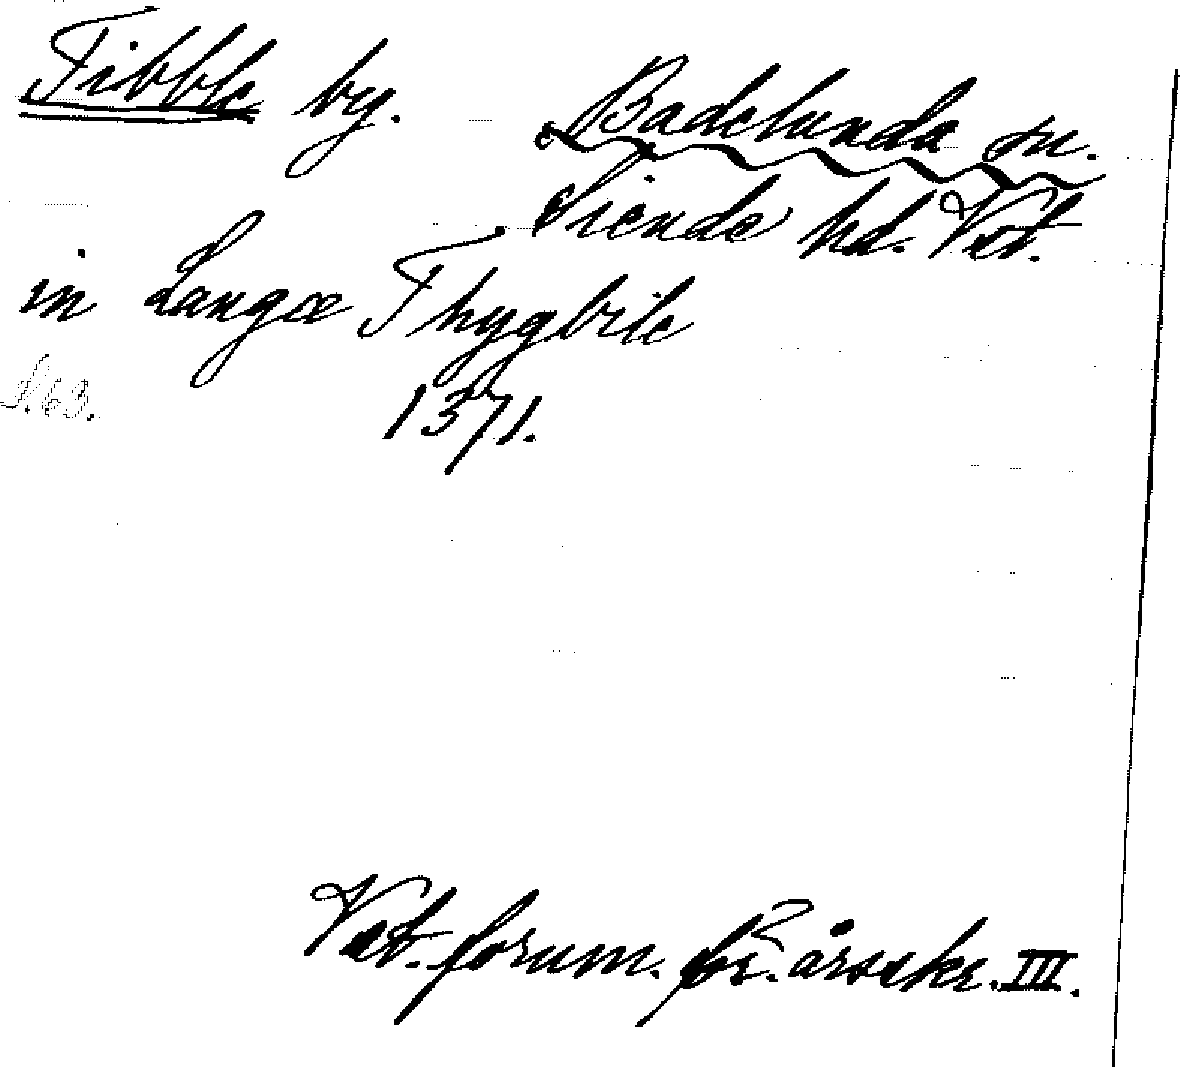 Tibble by.
Badelunda sn.
Siende hd. Vst.
in Langæ Thygbile
S. 63.
1371.
Vst. fornm. för:s årsskr. III.